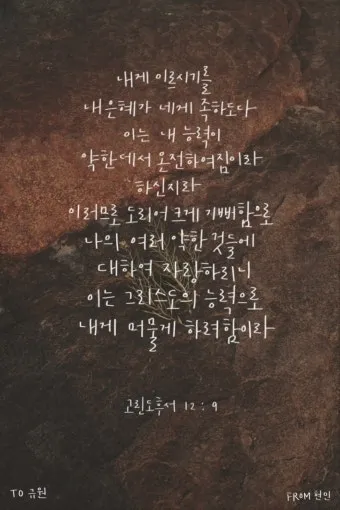 내게 이르시기를
내 은혜가 네게 족하도다
이는 내 능력이
약한데서 온전하여짐이라
하신지라
이러므로 도리어 크게 기뻐함으로
나의 여러 약한 것들에
대하여 자랑하리니
이는 그리스도의 능력으로
내게 머물게 하려함이라
고린도후서 12 : 9
TO 규원
FROM 현인